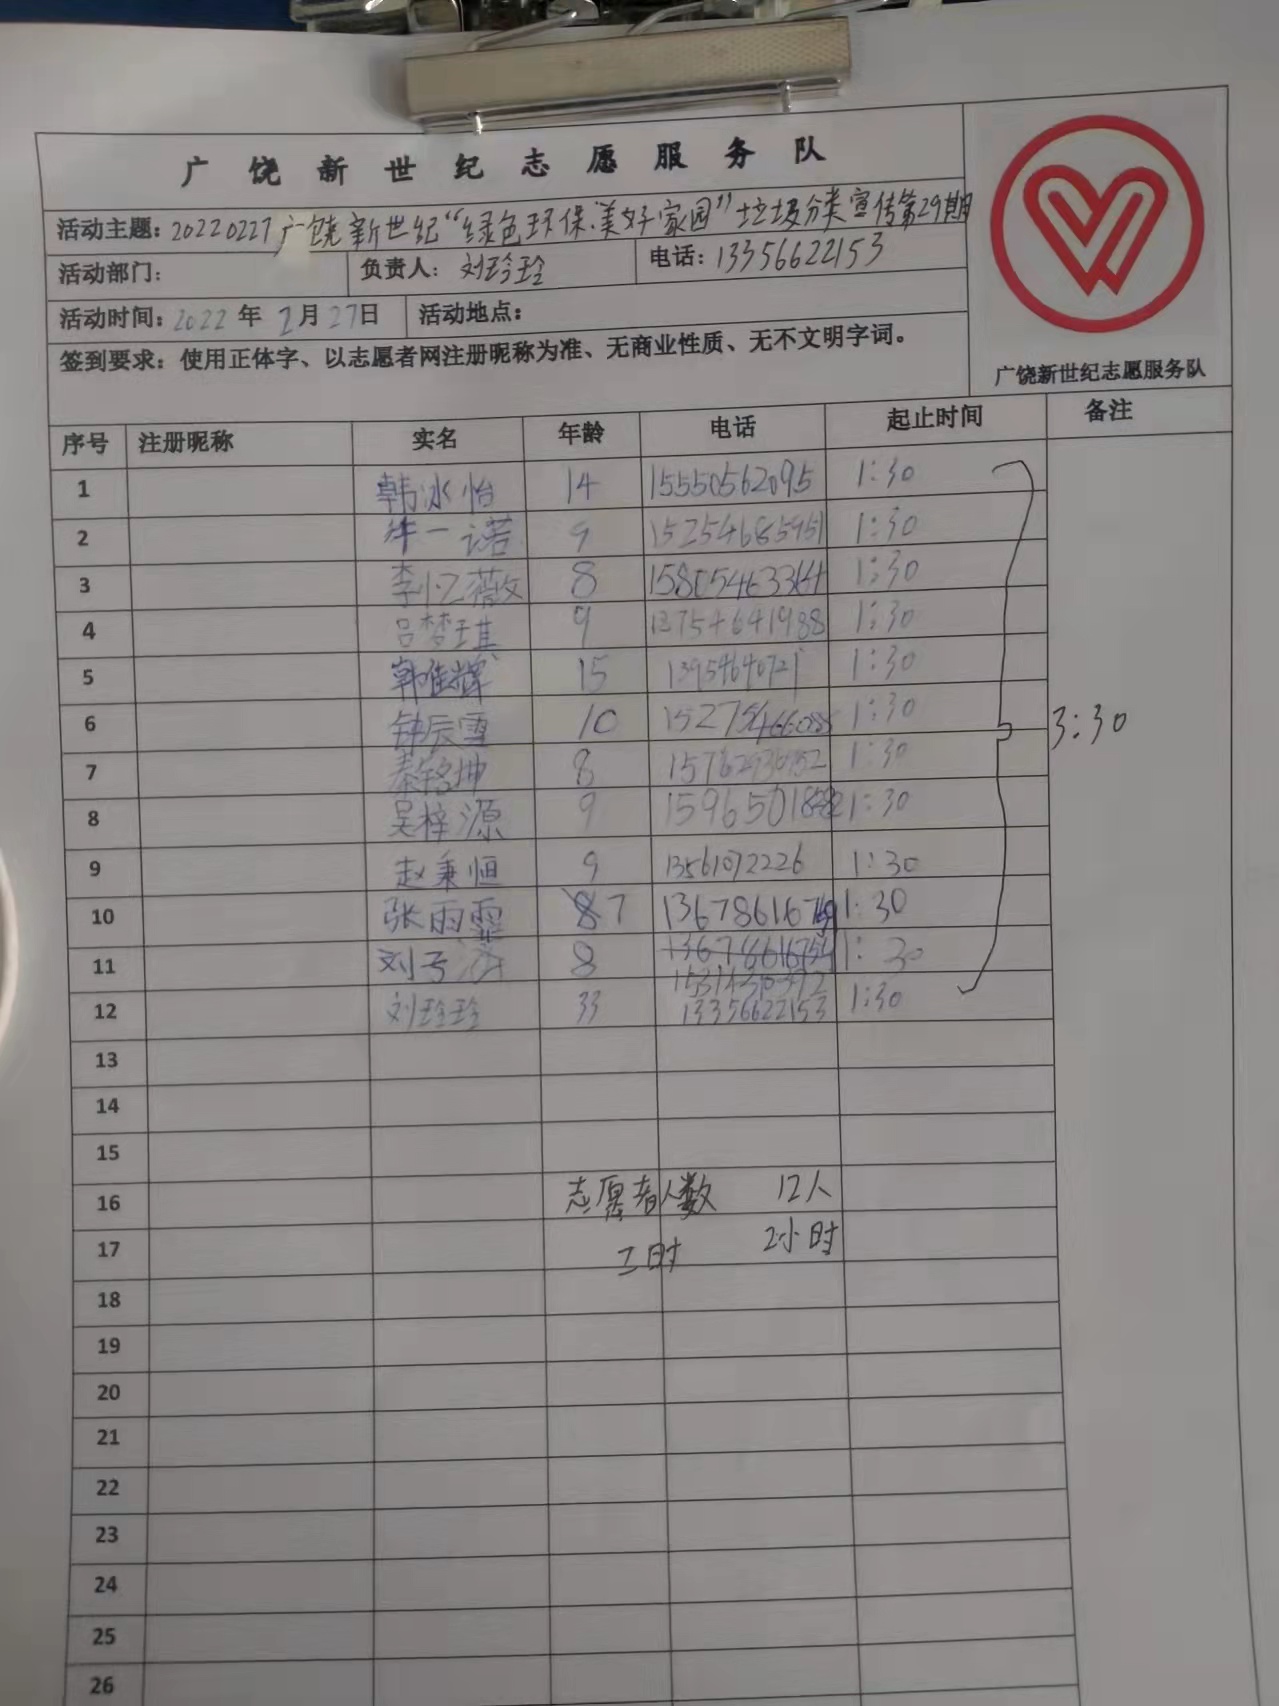 广饶新世纪志愿服务队
活动主题：20220227广饶新世纪“绿色环保.美好家园”垃圾分类宣传第29期
活动部门： 负责人：刘玲玲 电话：13356622153
活动时间：2022年2月27日 活动地点：
签到要求：使用正体字、以志愿者网注册昵称为准、无商业性质、无不文明字词。
广饶新世纪志愿服务队
序号 注册昵称 实名 年龄 电话 起止时间 备注
1 韩冰怡 14 15550562095 1:30
2 牛一诺 9 15254685951 1:30
3 李忆薇 8 1:30
4 吕梦琪 9 13754641988 1:30
5 韩唯辉 15 13954640721 1:30
6 钟辰雪 10 1:30
3:30
7 秦铭坤 8 1:30
8 吴梓源 9 1:30
9 赵秉恒 9 13561072226 1:30
10 张雨霏 7 1:30
11 刘子 8 1:30
12 刘玲玲 33 13356622153 1:30
13
14
15
16 志愿者人数 12人
17 工时 2小时
18
19
20
21
22
23
24
25
26